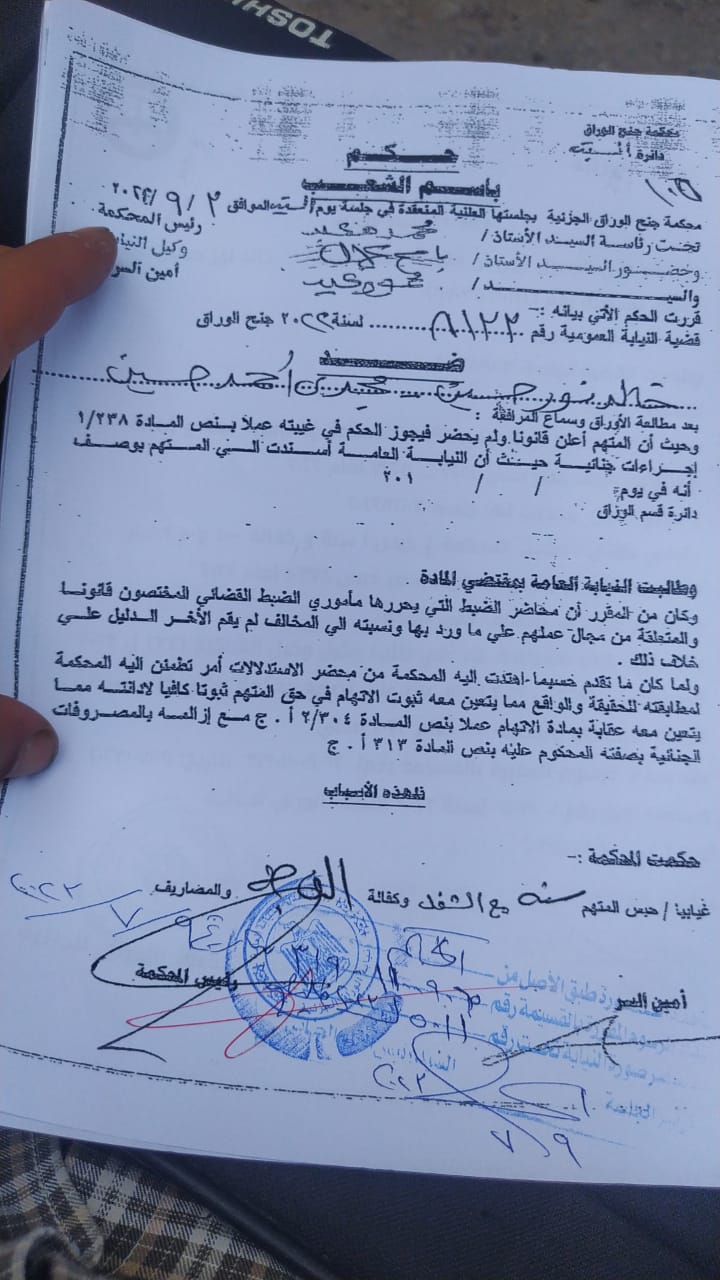 TOSHI
محكمة جنح الوراق
دائرة السبت
حكم
باسم الشعب
محكمة جنح الوراق الجزئية بجلستها العلنية المنعقدة في جلسة يوم السبت الموافق ٢ / ٩ /
تحت رئاسة السيد الأستاذ / محمد رئيس المحكمة
وحضور السيد الأستاذ / وكيل النيابة
والسيد / أمين السر
قررت الحكم الأتي بيانه :-
قضية النيابة العمومية رقم ٨١٢٢ لسنة ٢٠٢٢ جنح الوراق
ضد
خالد نور حسين أحمد حسين
بعد مطالعة الأوراق وسماع المرافعة :
وحيث أن المتهم أعلن قانونا ولم يحضر فيجوز الحكم في غيبته عملا بنص المادة ١/٢٣٨
إجراءات جنائية حيث أن النيابة العامة أسندت الي المتهم بوصف
أنه في يوم / / ٢٠١
دائرة قسم الوراق
وطالبت النيابة العامة بمقتضي المادة
وكان من المقرر أن محاضر الضبط التي يحررها مأموري الضبط القضائي المختصون قانونا
والمتعلقة من مجال عملهم علي ما ورد بها ونسبته الي المخالف لم يقم الأخر الدليل علي
خلاف ذلك .
ولما كان ما تقدم حسبما اهتدت اليه المحكمة من محضر الاستدلالات أمر تطمئن اليه المحكمة
لمطابقته للحقيقة والواقع مما يتعين معه ثبوت الاتهام في حق المتهم ثبوتا كافيا لادانته مما
يتعين معه عقابة بمادة الاتهام عملا بنص المادة ٢/٣٠٤ أ . ج مع إزالمه بالمصروفات
الجنائية بصفته المحكوم عليه بنص المادة ٣١٣ أ . ج
فلهذه الأسباب
حكمت المحكمة :-
غيابيا / حبس المتهم سنة مع الشغل وكفالة والمضاريف
أمين السر رئيس المحكمة
صورة طبق الأصل من